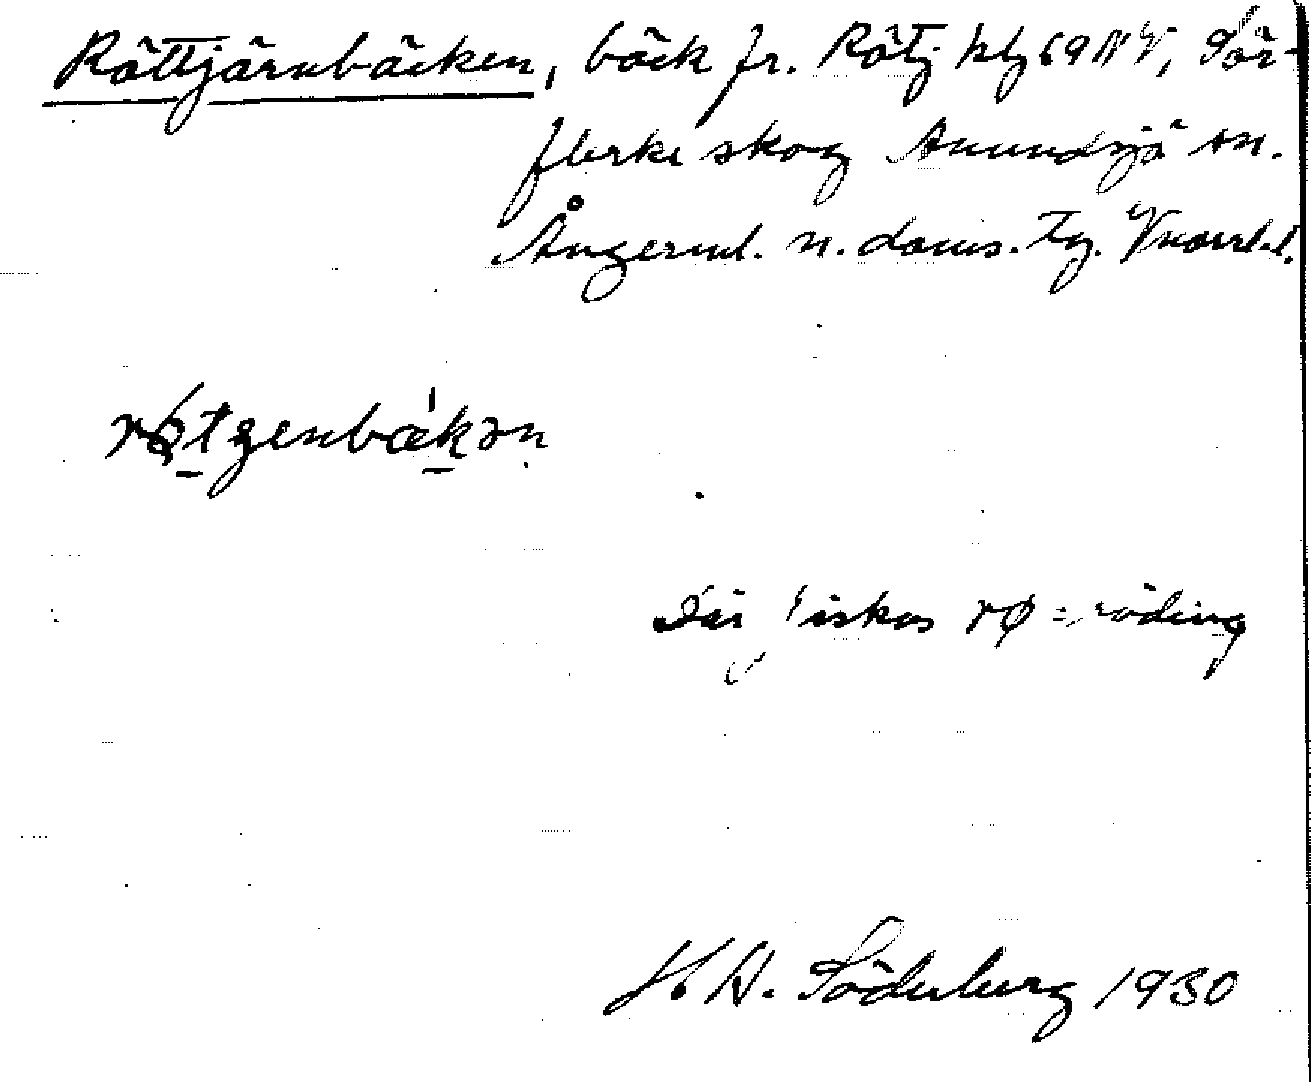 Röttjärnbäcken, bäck fr. Rötj kbl 69 NV, Sör-
flärke skog Anundsjö sn.
Ångerml. n. doms. Tg. Vnorrl. l.
røtgenbækən
Där fiskas rø = röding
H. A. Söderberg 1930